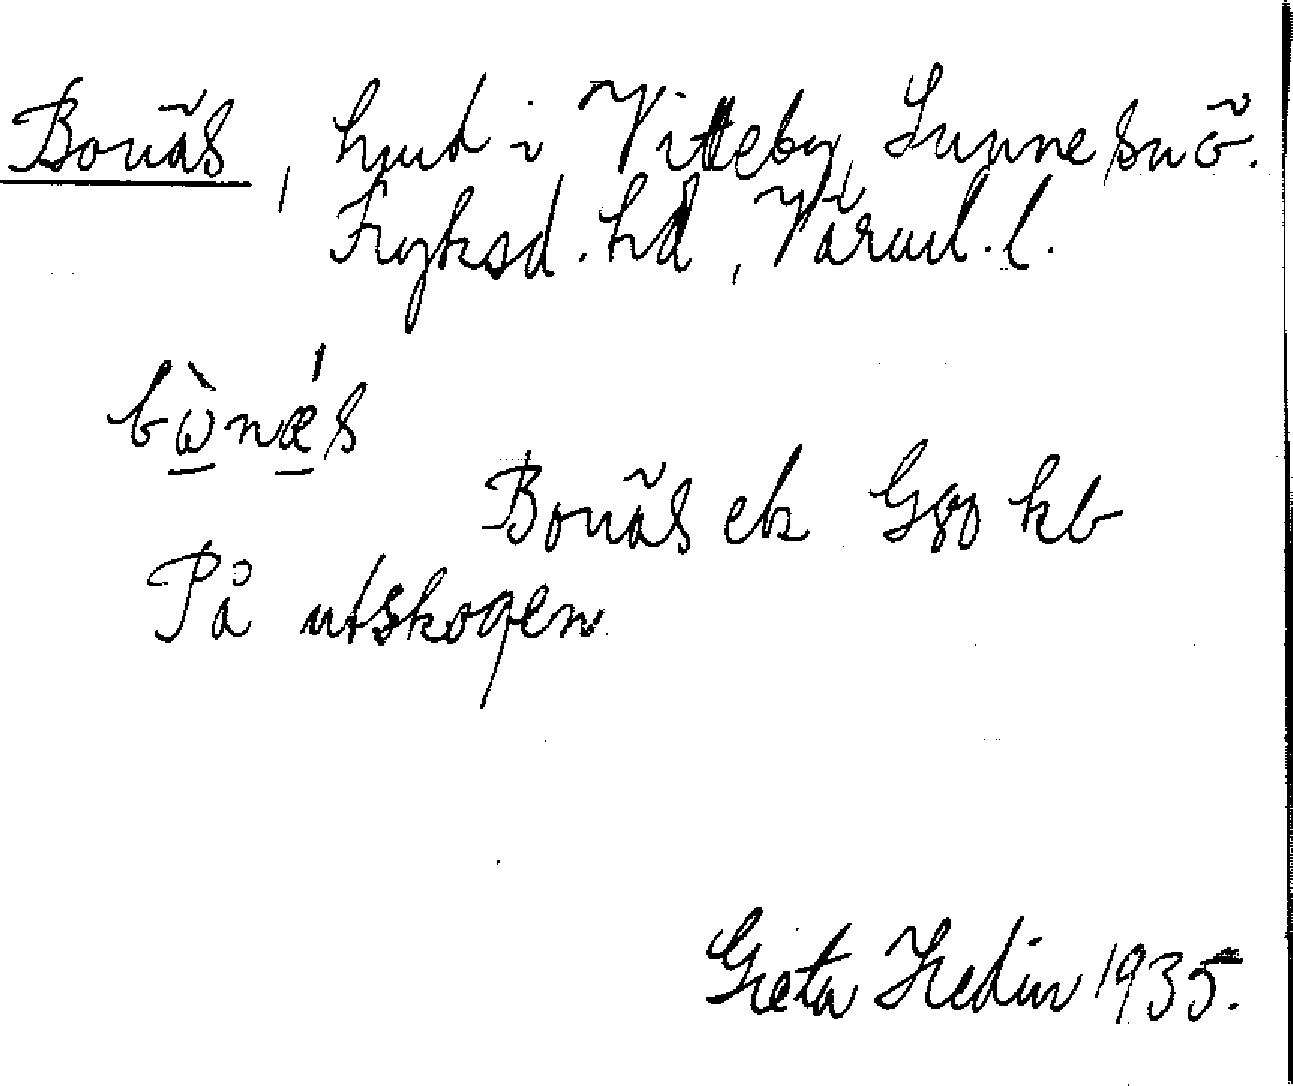 Bonäs, hmd i Vitteby, Sunne sn ö.
Fryksd. hd, Värml. l.
bὼnæ´s
Bonäs ek G80 kb
På utskogen
Greta Hedin 1935.